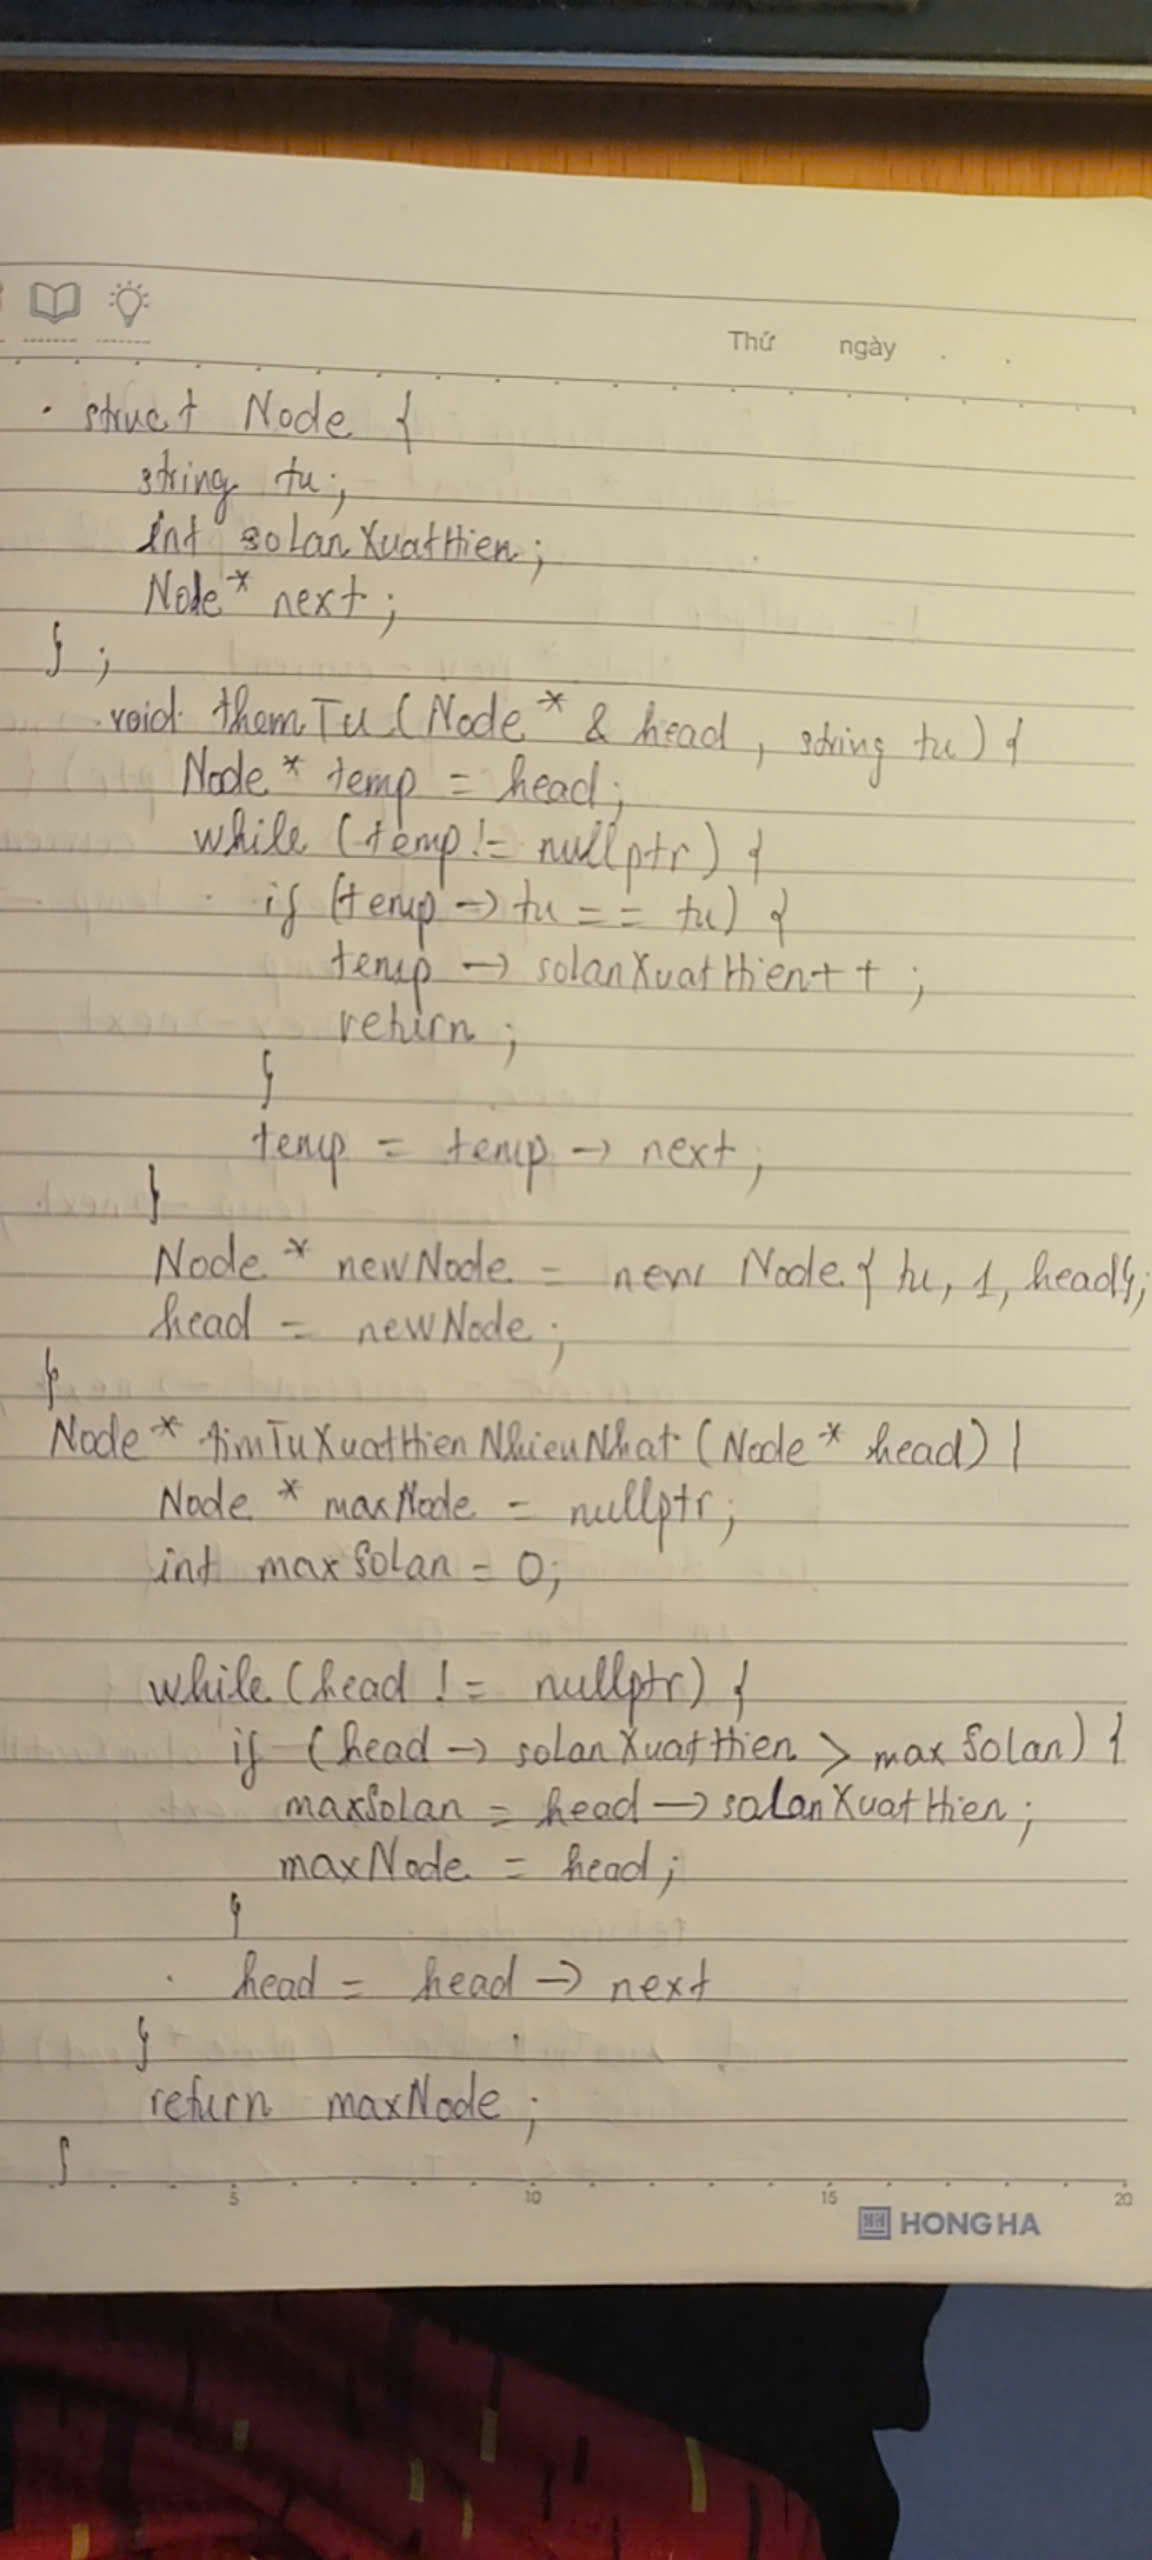 Thứ ngày
struct Node {
string tu;
int solanXuatHien;
Node* next;
};
void themTu(Node*& head, string tu) {
Node* temp = head;
while (temp != nullptr) {
if (temp -> tu == tu) {
temp -> solanXuatHien++;
return;
}
temp = temp -> next;
}
Node* newNode = new Node{tu, 1, head};
head = newNode;
}
Node* timTuXuatHienNhieuNhat(Node* head) {
Node* maxNode = nullptr;
int maxSolan = 0;
while (head != nullptr) {
if (head -> solanXuatHien > maxSolan) {
maxSolan = head -> solanXuatHien;
maxNode = head;
}
head = head -> next
}
return maxNode;
}
5 10 15 20
HONG HA